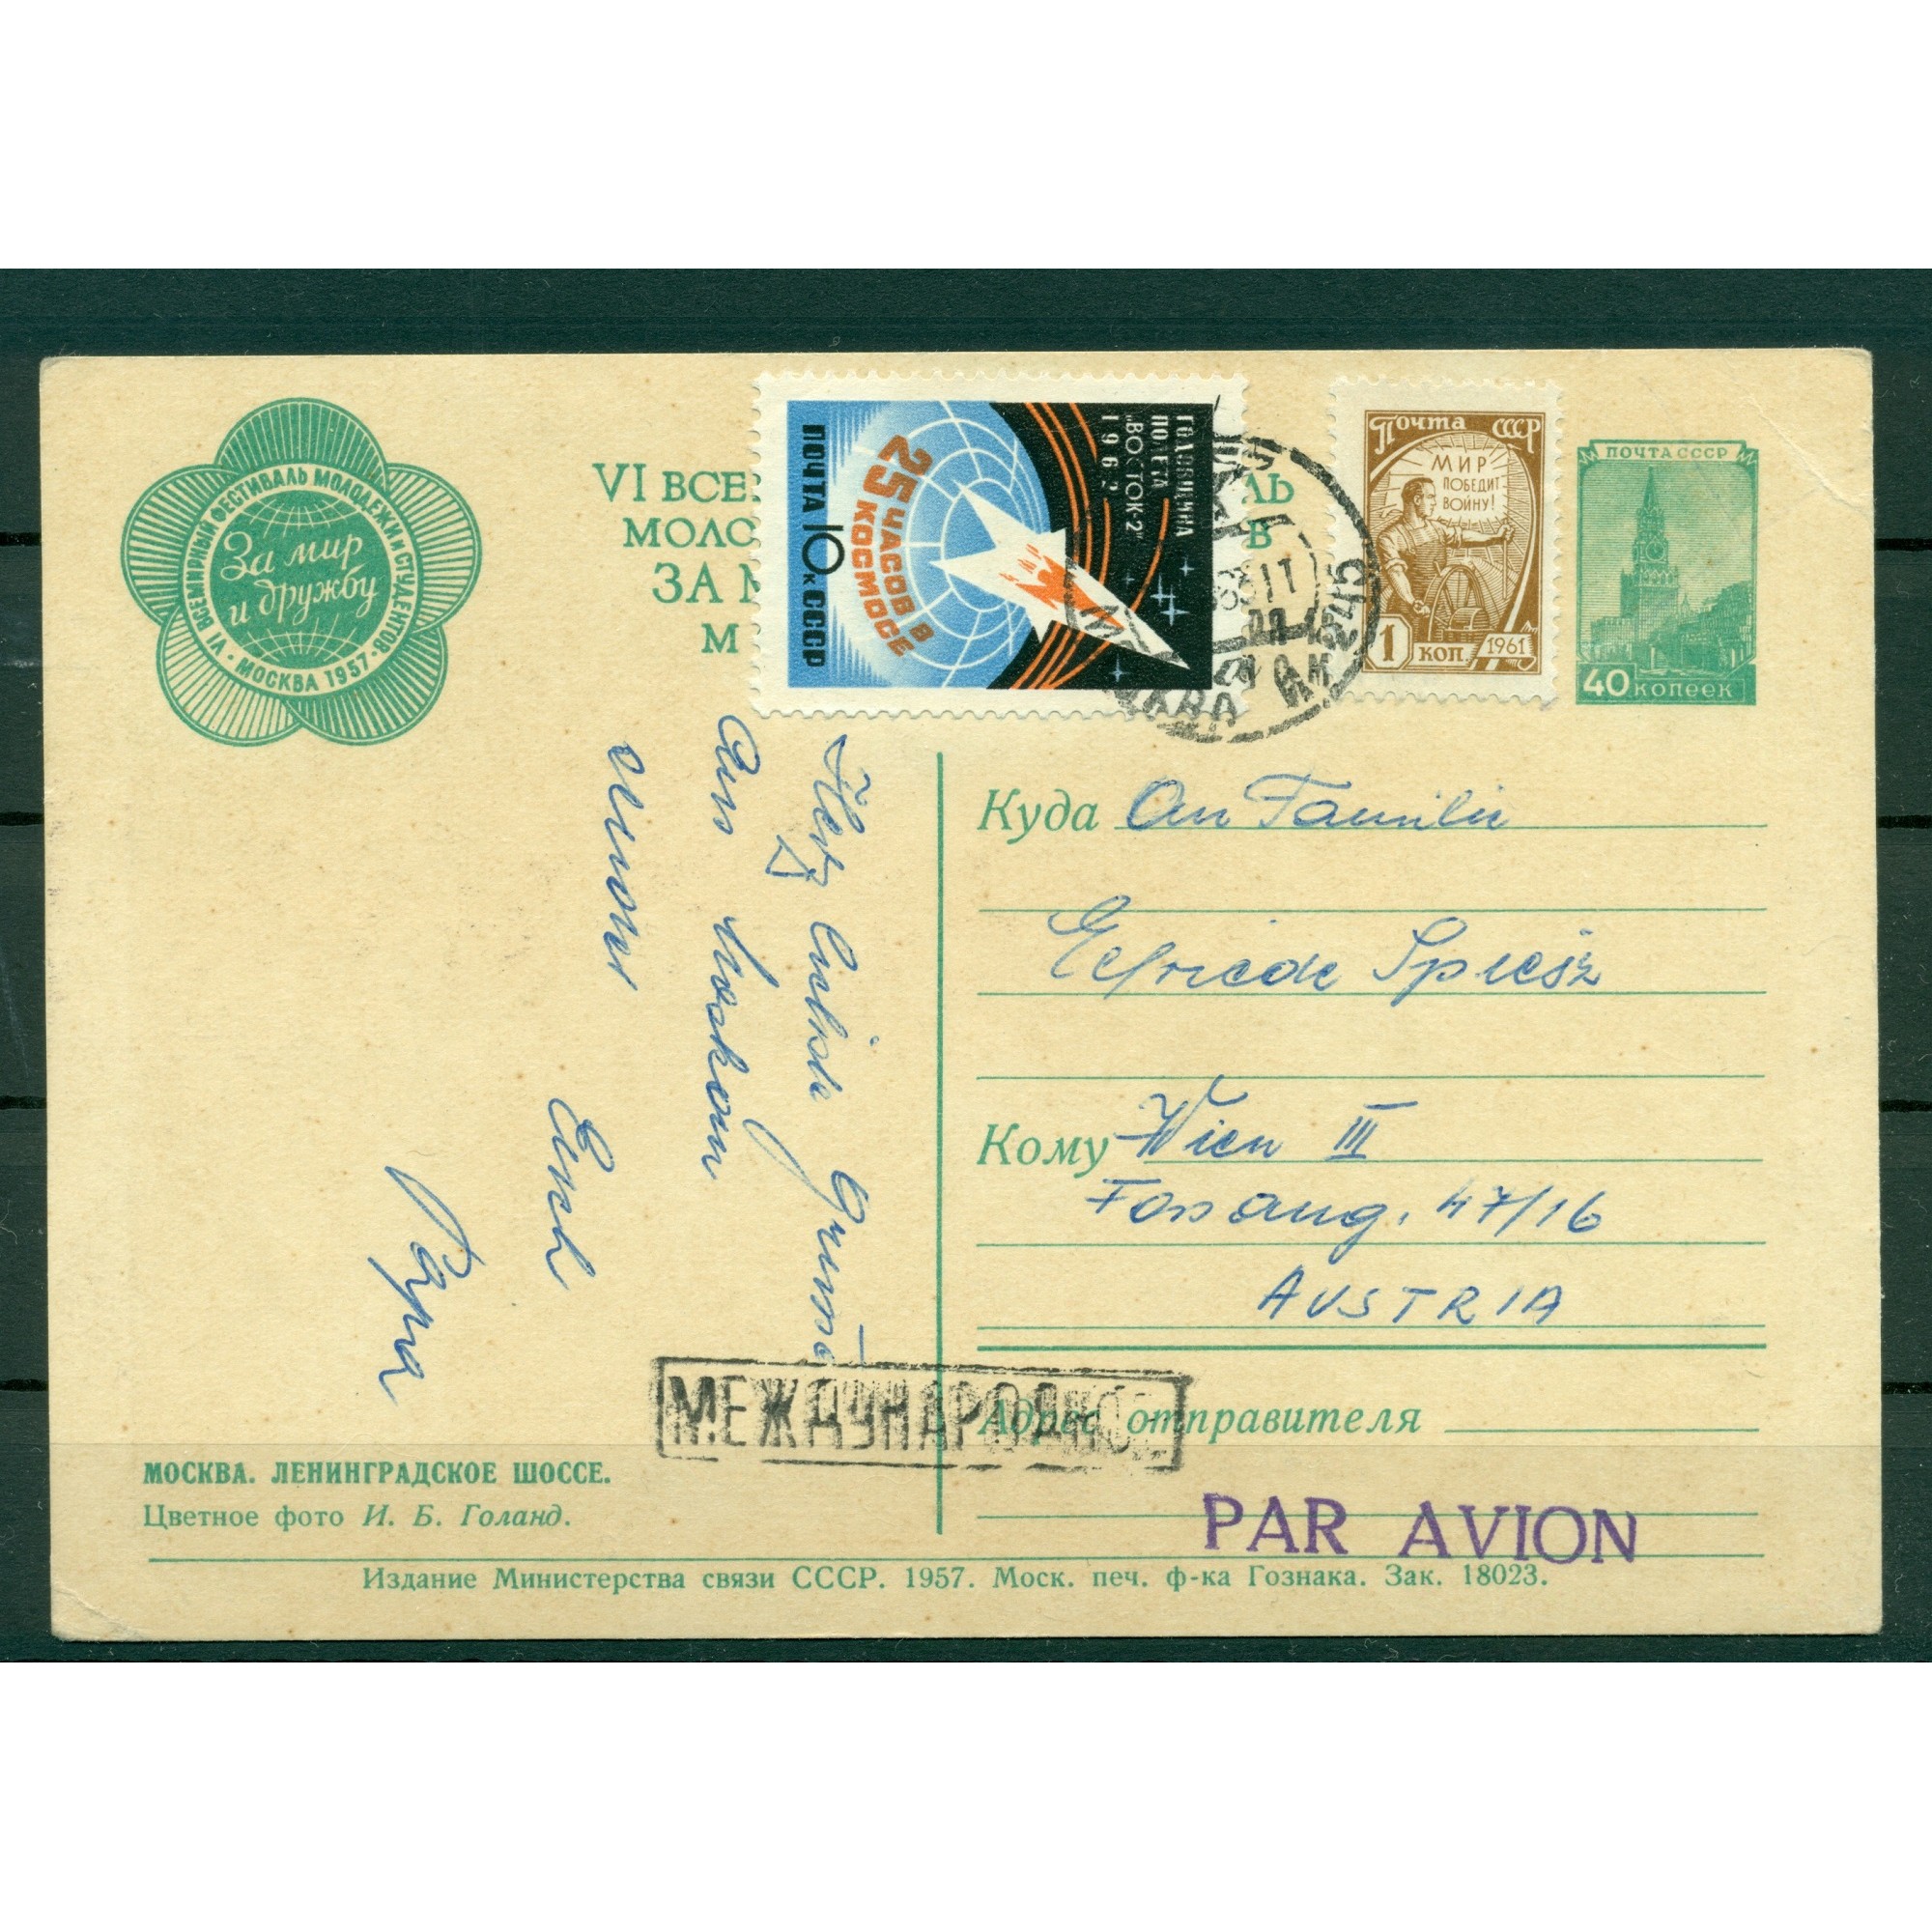 VI ВСЕМИРНЫЙ ФЕСТИВАЛЬ МОЛОДЕЖИ И СТУДЕНТОВ
МОСКВА 1957
За мир
и дружбу
VI ВСЕ
ЛЬ
МОЛО
В
ЗА М
М
ПОЧТА 10 К СССР
25 ЧАСОВ В
КОСМОСЕ
ГОДОВЩИНА
ПОЛЕТА
„ВОСТОК-2"
1962
Почта СССР
МИР
ПОБЕДИТ
ВОЙНУ!
1 КОП. 1961
ПОЧТА СССР
40 КОПЕЕК
Herzlichste Grüße
aus Moskau
Euch
Куда An Familie
Elfriede Spiesz
Кому Wien III
Fasang. 47/16
AUSTRIA
МЕЖДУНАРОДНОЕ
Адрес отправителя
PAR AVION
МОСКВА. ЛЕНИНГРАДСКОЕ ШОССЕ.
Цветное фото И. Б. Голанд.
Издание Министерства связи СССР. 1957. Моск. печ. ф-ка Гознака. Зак. 18023.